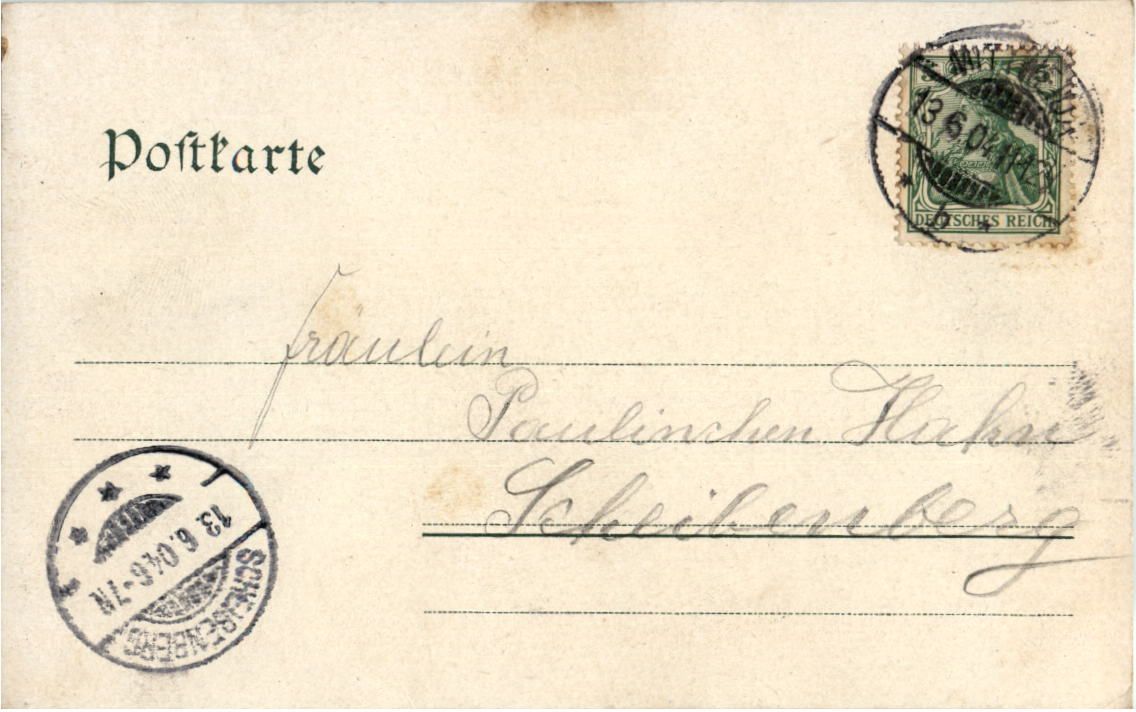 Postkarte
13.6.04.11-12V.
* b *
DEUTSCHES REICH
Fräulein
Paulinchen Hahn
Scheibenberg
13.6.04.6-7N.
SCHEIBENBERG